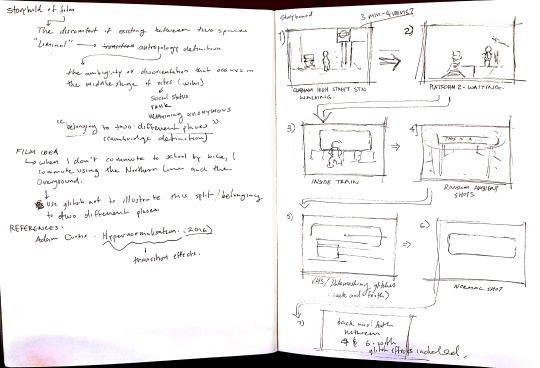 Storyhold of film
The discomfort of existing between two spaces
"Liminal" → anthropology definition
the ambiguity or disorientation that occurs in
the middle stage of rites (wiki)
Social status
rank
remaining anonymous
"belonging to two different places"
(Cambridge definition)
FILM IDEA
when I don't commute to school by bike, I
commute using the Northern Line and the
Overground.
Use glitch art to illustrate this split/belonging
to two different places
REFERENCES:
Adam Curtis. Hypernormalisation. (2016)
transition effects.
Storyboard
3 min - 4 mins?
1)
2)
CLAPHAM HIGH STREET STN
WALKING.
PLATFORM 2 - WAITING.
3)
4)
THIS IS A
INSIDE TRAIN
RANDOM AMBIENT
SHOTS
5)
6)
VHS/Datamoshing glitches
back and forth)
NORMAL SHOT
7)
back and forth
between
4 & 6 with
glitch effects included.